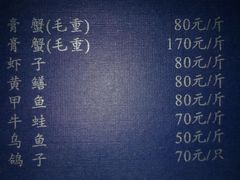 膏 蟹(毛重) 80元/斤
膏 蟹(毛重) 170元/斤
虾 子 80元/斤
黄 鳝 80元/斤
甲 鱼 80元/斤
牛 蛙 70元/斤
乌 鱼 50元/斤
鸽 子 70元/只